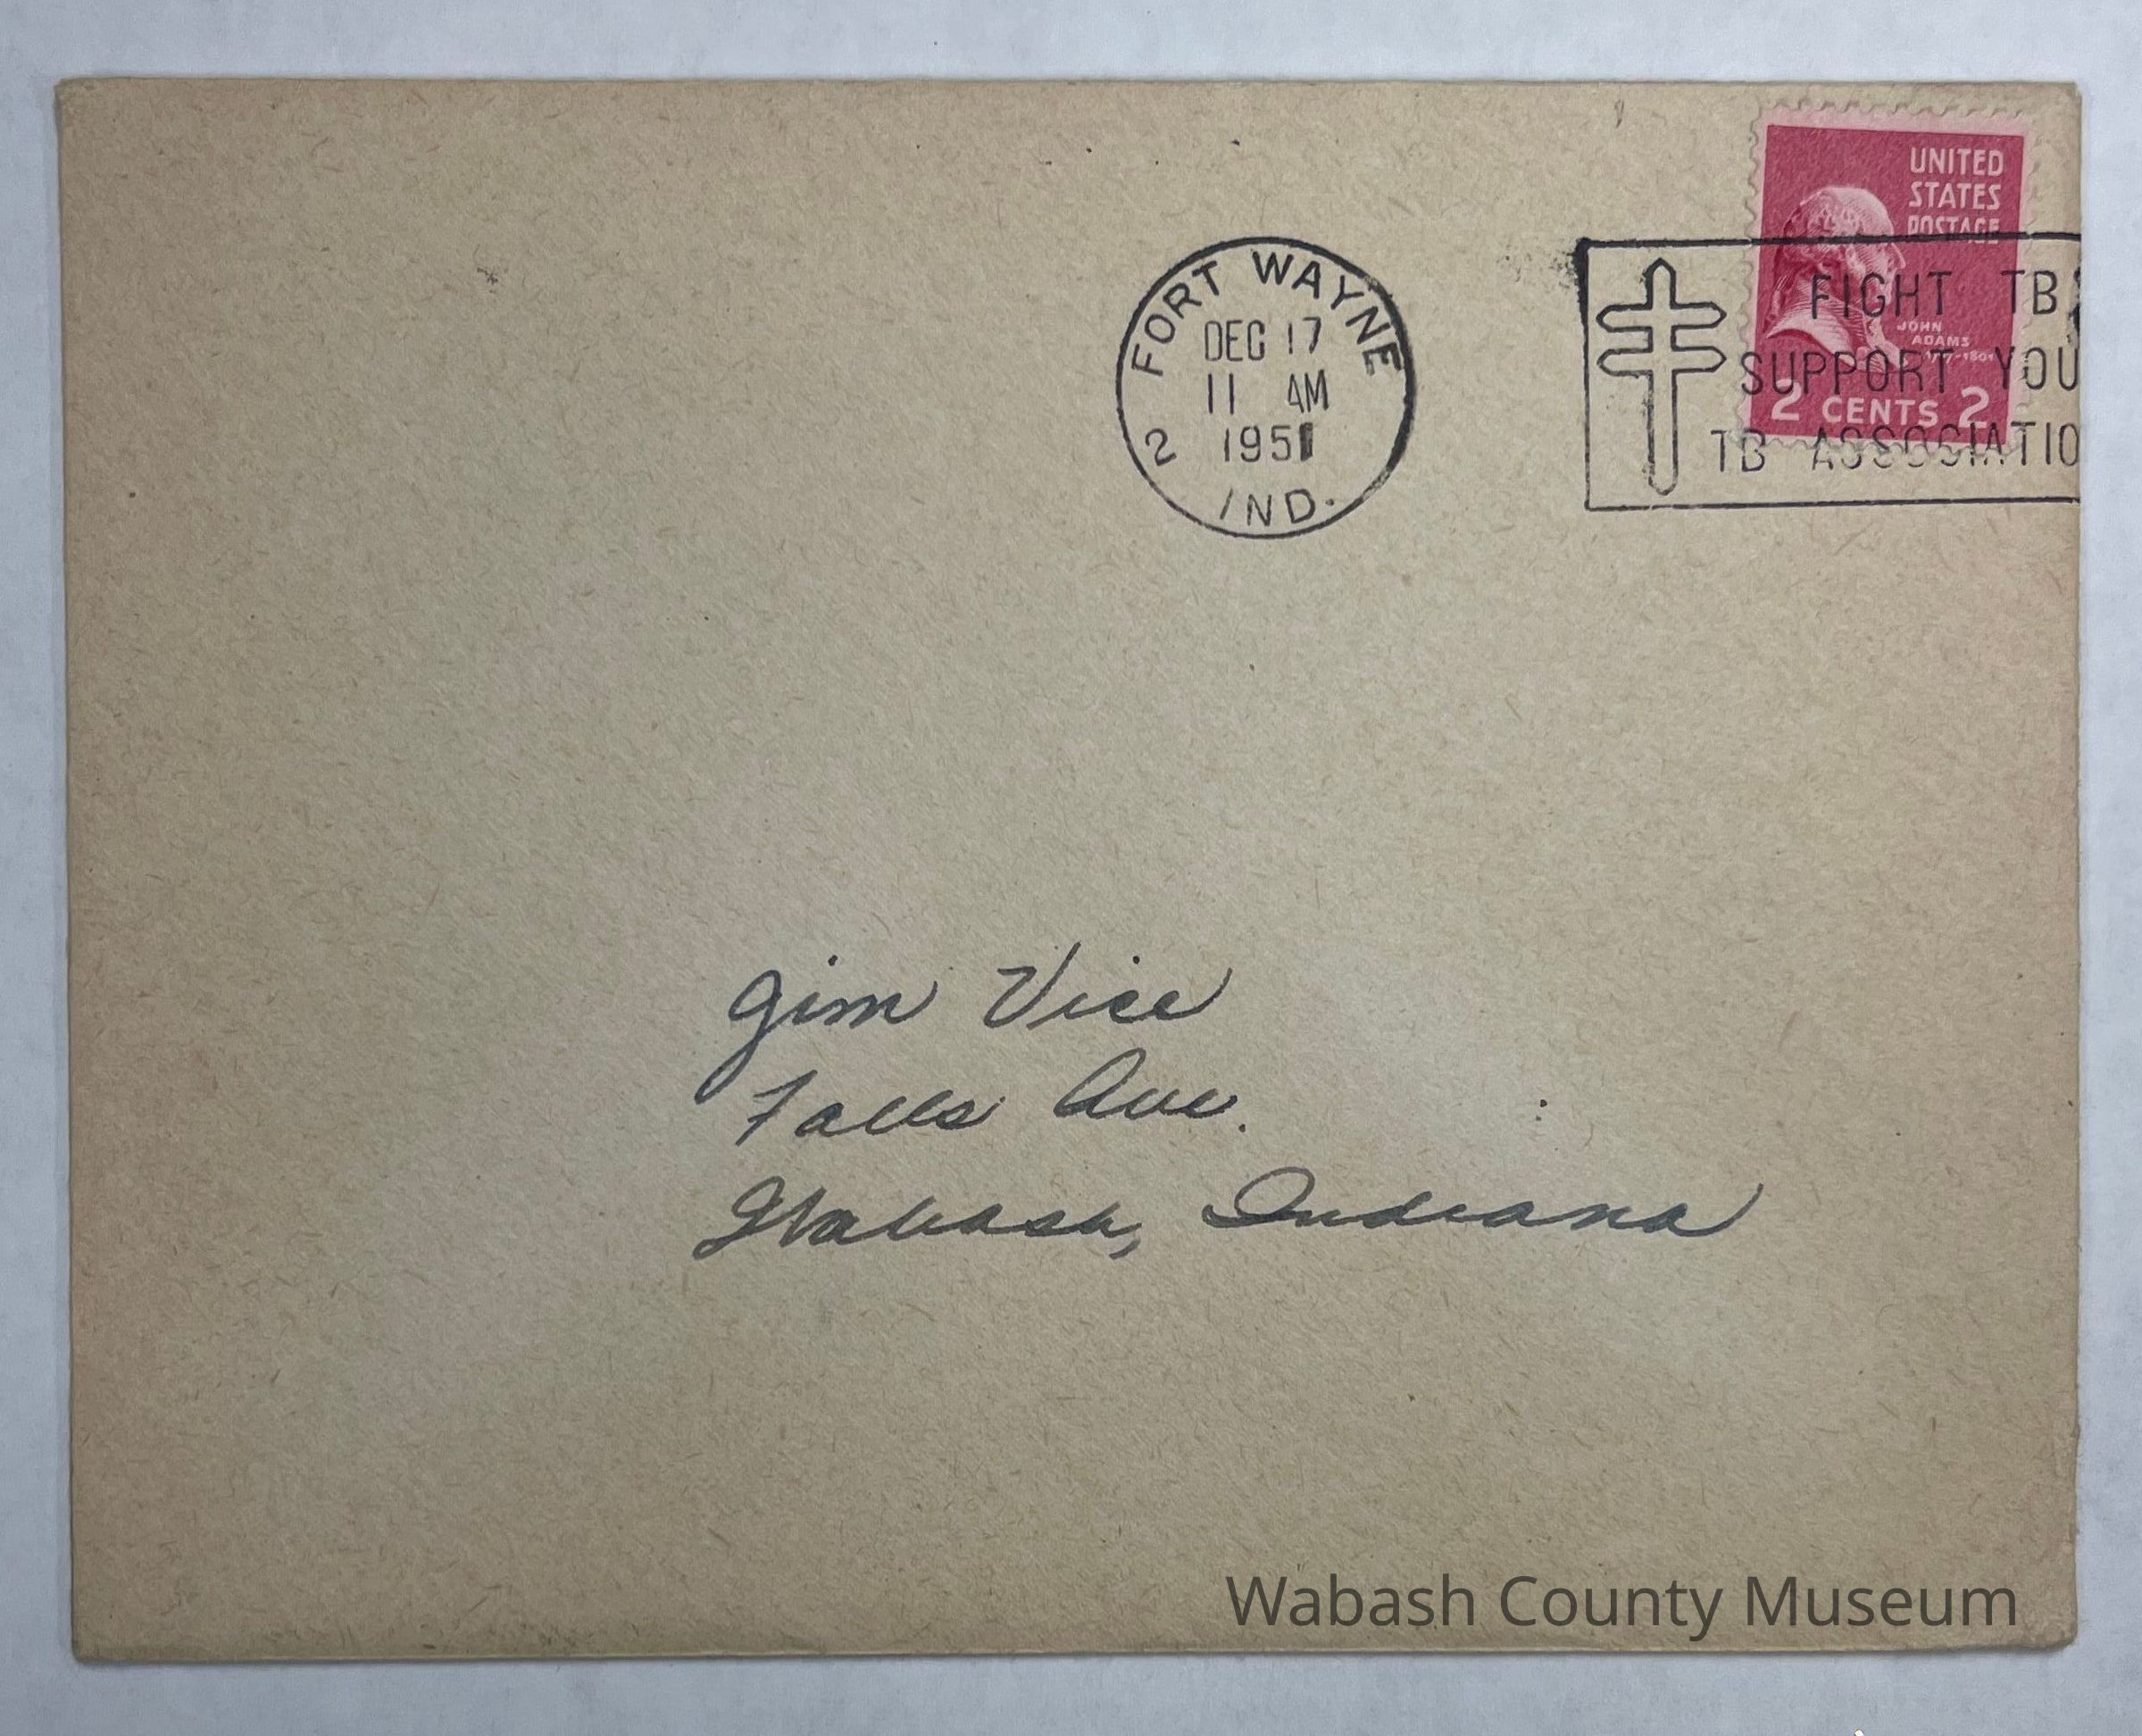 UNITED
STATES
POSTAGE
JOHN
ADAMS
2 CENTS 2
FORT WAYNE
DEC 17
11 AM
1951
2
IND.
FIGHT TB
SUPPORT YOU
TB ASSOCIATIO
Jim Vice
Falls Ave.
Wabash, Indiana
Wabash County Museum